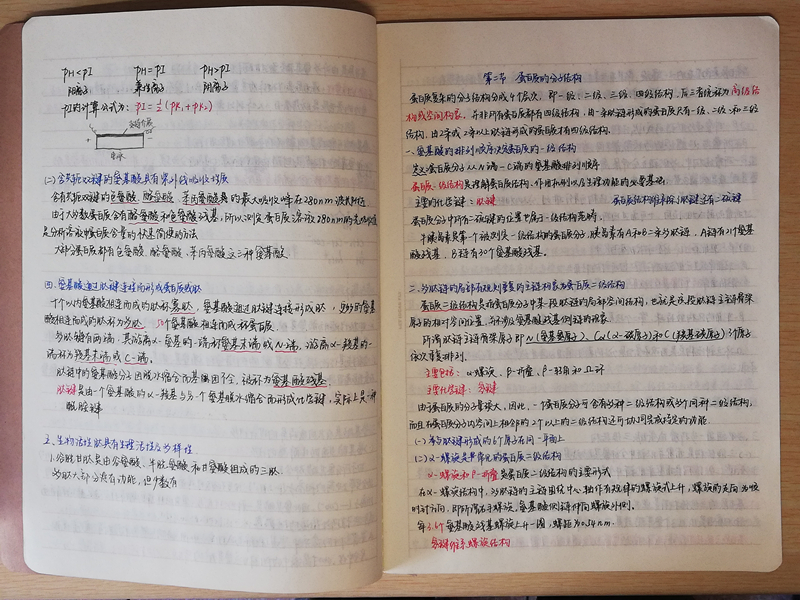 pH<pI pH=pI pH>pI
阳离子 兼性离子 阴离子
pI的计算公式为：pI=½(pK₁+pK₂)
(二)含共轭双键的氨基酸具有紫外线吸收性质
含有共轭双键的色氨酸、酪氨酸、苯丙氨酸的最大吸收峰在280nm波长附近
由于大多数蛋白质含有酪氨酸和色氨酸残基，所以测定蛋白质溶液280nm的光吸收值
是分析溶液中蛋白质含量的快速简便的方法
大部分蛋白质都有色氨酸、酪氨酸、苯丙氨酸这三种氨基酸
四、氨基酸通过肽键连接而形成蛋白质或肽
十个以内氨基酸相连而成的肽称寡肽，氨基酸通过肽键连接形成肽，更多的氨基
酸相连而成的肽称为多肽，50个氨基酸相连而成称蛋白质。
多肽链有两端，其游离α-氨基的一端称氨基末端或N-端，游离α-羧基的一
端称为羧基末端或C-端。
肽链中的氨基酸分子因脱水缩合而基团不全，被称为氨基酸残基
肽键是由一个氨基酸的α-羧基与另一个氨基酸脱水缩合而形成化学键，实际上是一种
酰胺键
五、生物活性肽具有生理活性及多样性
1.谷胱甘肽是由谷氨酸、半胱氨酸和甘氨酸组成的三肽
第二节 蛋白质的分子结构
蛋白质复杂的分子结构分成4个层次，即一级、二级、三级、四级结构，后三者统称为高级结
构或空间构象，并非所有蛋白质都有四级结构，由一条肽链形成的蛋白质只有一级、二级、和三级
结构，由2条或2条以上肽链形成的蛋白质才有四级结构。
一、氨基酸的排列顺序决定蛋白质的一级结构
蛋白质分子从N-端-C端的氨基酸排列顺序
蛋白质一级结构是理解蛋白质结构、作用机制以及生理功能的必要基础
主要的化学键：肽键
蛋白质分子中所有二硫键的位置也属于一级结构范畴。
牛胰岛素是第一个被测定一级结构的蛋白质分子，胰岛素有A和B二条多肽链，A链有21个氨基
酸残基，B链有30个氨基酸残基。
二、多肽链的局部有规则重复的主链构象为蛋白质二级结构
蛋白质二级结构是指蛋白质分子中某一段肽链的局部空间结构，也就是该段肽链主链骨架
原子的相对空间位置，并不涉及氨基酸残基侧链的构象
所谓肽链主链骨架原子即N(氨基氮原子)、Cα(α-碳原子)和C(羰基碳原子)3个原子
依次重复排列。
主要包括：α-螺旋、β-折叠、β-转角和Ω环
主要化学键：氢键
由于蛋白质的分子量较大，因此，一个蛋白质分子可含有多种二级结构或多个同种二级结构，
而且在蛋白质分子内空间上相邻的2个以上的二级结构还可协同完成特定的功能。
(一)参与肽键形成的6个原子在同一平面上
(二)α-螺旋是常见的蛋白质二级结构
α-螺旋和β-折叠是蛋白质二级结构的主要形式
在α-螺旋结构中，多肽链的主链围绕中心轴作有规律的螺旋式上升，螺旋的走向为顺
时针方向，即所谓右手螺旋，氨基酸侧链伸向螺旋外侧。
每3.6个氨基酸残基螺旋上升一圈，螺距为0.54nm.
氢键维系螺旋结构